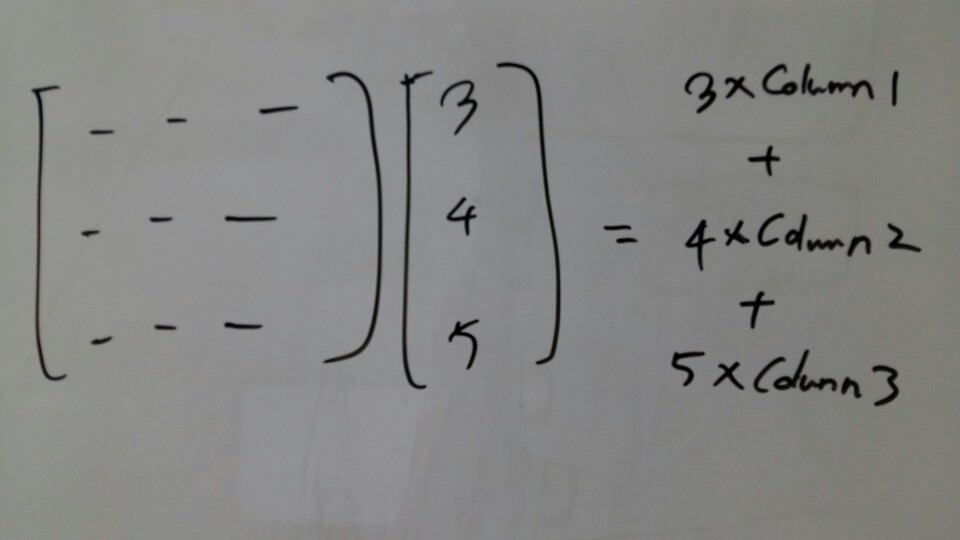 [ - - - ] [ 3 ] 3 x Column 1
+
[ - - - ] [ 4 ] = 4 x Column 2
+
[ - - - ] [ 5 ] 5 x Column 3